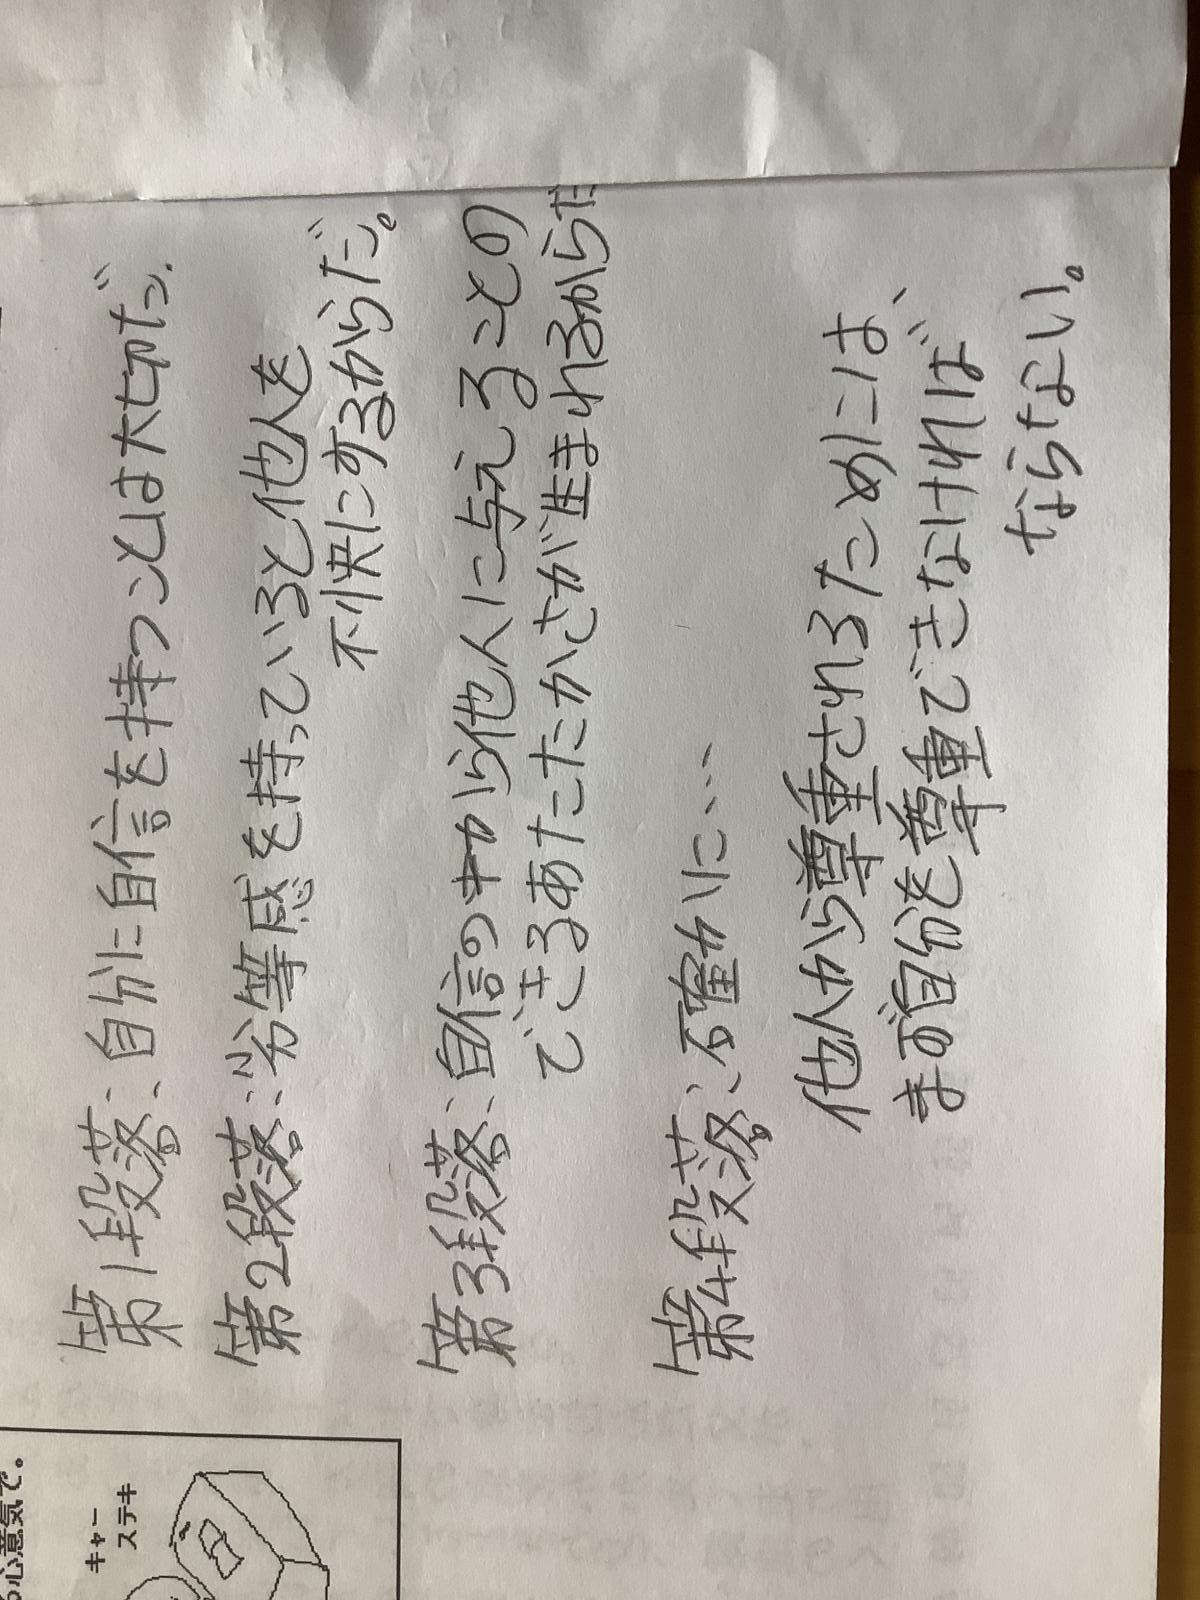 第1段落：自分に自信を持つことは大切だ.
第2段落：劣等感を持っていると他人を
不快にするからだ。
第3段落：自信の中から他人に与えることの
できるあたたかさが生まれるからだ
第4段落：確かに…
他人から尊重されるためには、
まず自分を尊重できなければ
ならない。
心意気で。
キャー
ステキ